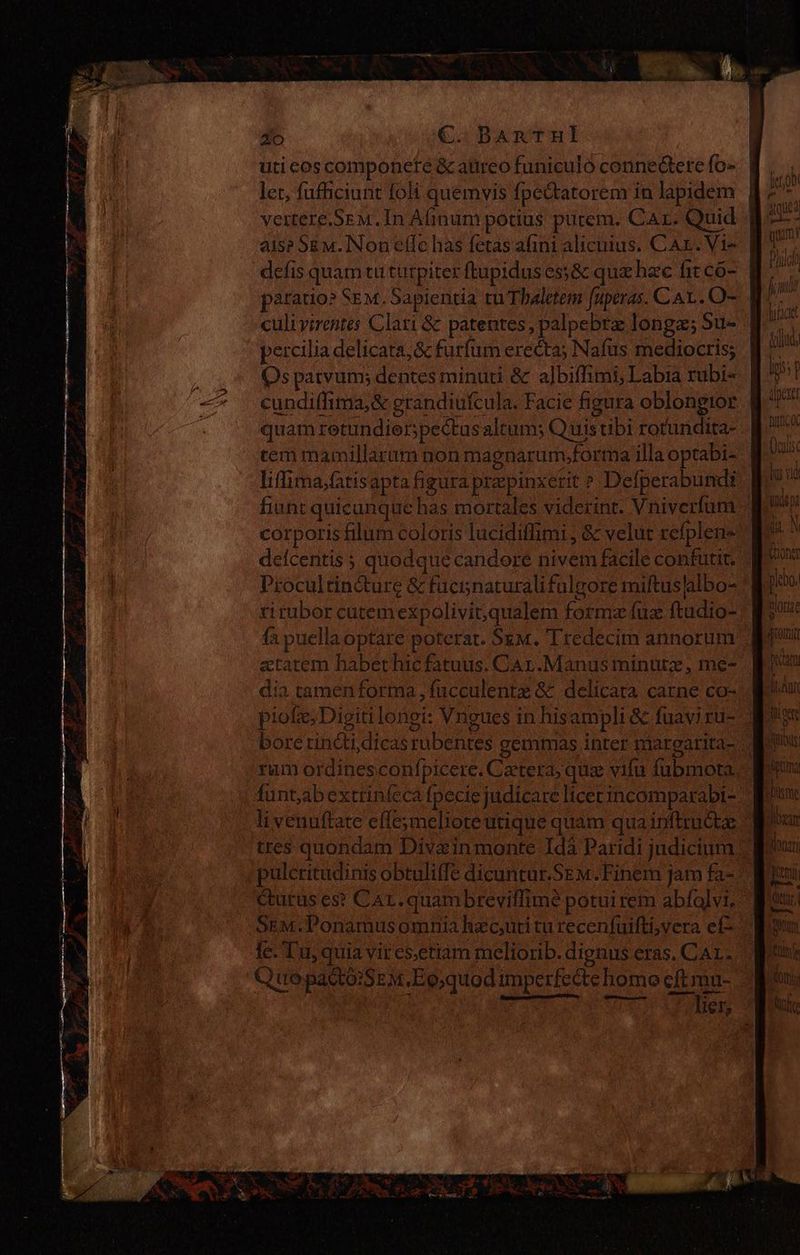 20 C. BARTHI
uti eos componere & aureo funiculo connectere so-
let, sufficiunt soli quemvis spectatorem in lapidem
vertere. SEM. In Asinum potius putem. CAL. Quid
ais? SEM. Non esse has setas asini alicuius. CAL. Vi-
desis quam tu turpiter stupidus es; & quæ hæc sit cō-
paratio? SEM. Sapientia tu Thaletem superas. CAL. O-
culi virentes Clari & patentes, palpebræ longæ; Su-
percilia delicata, & sursum erecta; Nasus mediocris;
Os parvum; dentes minuti & albissimi, Labia rubi-
cundissima, & grandiuscula. Facie figura oblongior
quam rotundior; pectus altum; Quis tibi rotundita-
tem mamillarum non magnarum, forma illa optabi-
lissima, satis apta figura præpinxerit ? Desperabundi
fiunt quicunque has mortales viderint. Vniversum
corporis filum coloris lucidissimi, & velut resplen-
descentis ; quodque candore nivem facile confutit.
Procul tincture & fuci; naturali fulgore mistus albo-
ri rubor cutem expolivit, qualem formæ suæ studio-
sa puella optare poterat. SEM. Tredecim annorum
ætatem habet hic fatuus. CAL. Manus minutæ, me-
dia tamen forma, succulentæ & delicata carne co-
piosæ; Digiti longi: Vngues in his ampli & suavi ru-
bore tincti, dicas rubentes gemmas inter margarita-
rum ordines conspicere. Cætera, quæ visu submota
sunt, ab extrinseca specie judicare licet incomparabi-
li venustate esse; meliore utique quam qua instructæ
tres quondam Divæ in monte Idā Paridi judicium
pulcritudinis obtulisse dicuntur. SEM. Finem jam fa-
cturus es? CAL. quam brevissimè potui rem absolvi.
SEM. Ponamus omnia hæc, uti tu recensuisti, vera es-
se. Tu, quia vir es, etiam meliorib. dignus eras. CAL.
Quo pacto? SEM. Eo, quod imperfecte homo est mu-
lier,